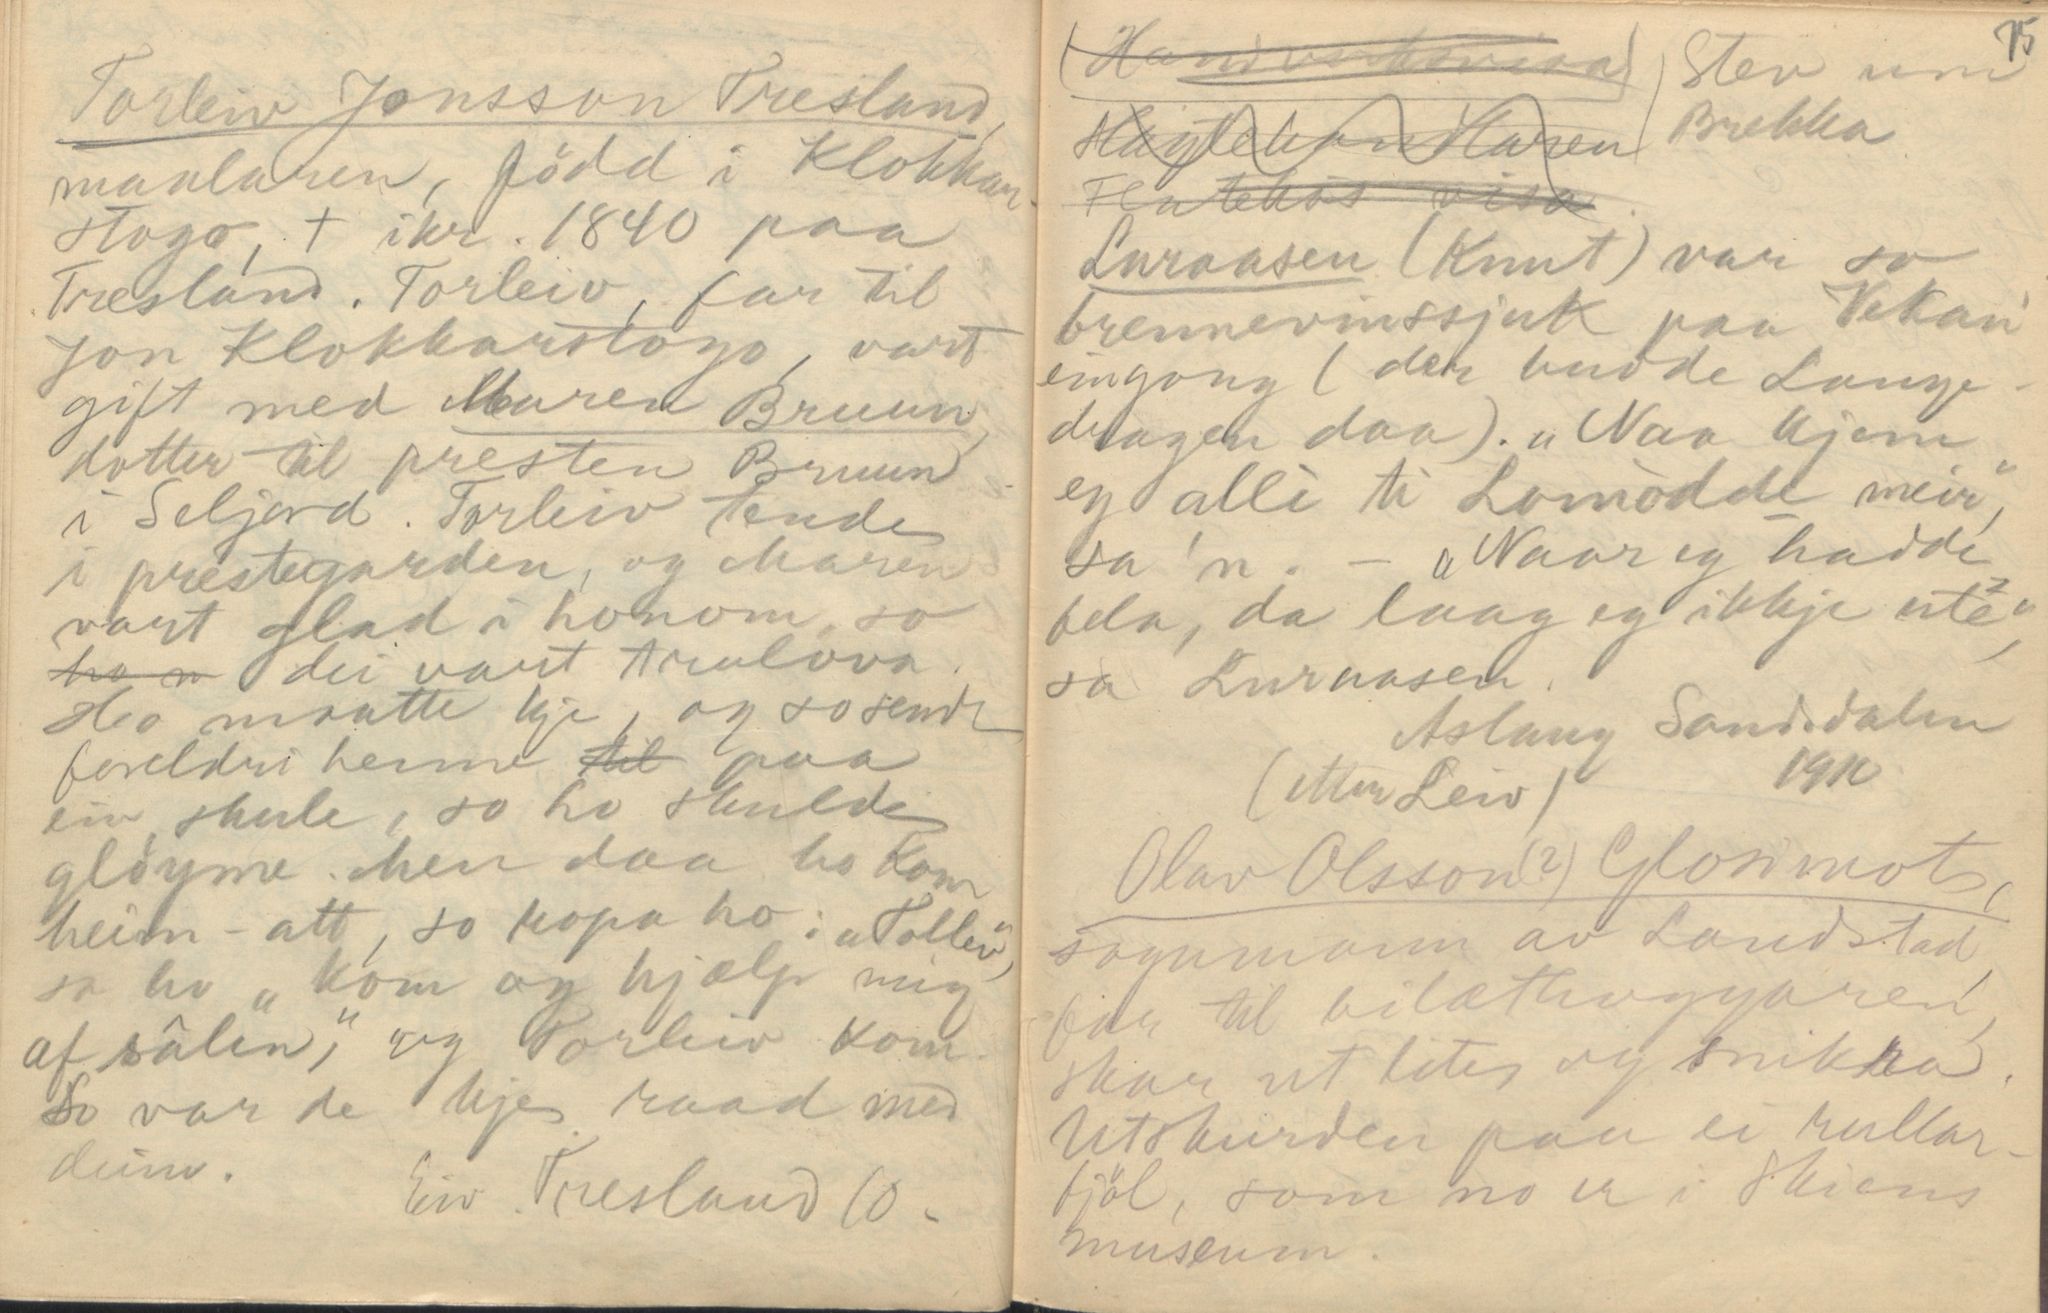 Torleiv Jonsson Tresland,
maalaren, född i Klokkar-
stogo, † ikr. 1840 paa
Tresland. Torleiv, far til
Jon Klokkarstogo, vart
gift med Maren Bruun,
dotter til presten Bruun
i Seljord. Torleiv tende
i prestegarden, og Maren
vart glad i honom, so
ho n dei vart trulova.
Ho maatte kje, og so sende
foreldri henne til paa
ein skule, so ho skulde
glöyme. Men daa ho kom
heim-att, so ropa ho: „Tolleiv",
sa ho „kom og hjælp mig
af sâlen," og Torleiv kom.
So var de kje raad med
deim.
Eiv. Tresland 10.
75
(Handverksvisa)
Stev um
Brekka
Flatekås visa.
Luraasen (Knut) var so
brennevinssjuk paa Vekan'
eingong (der budde Lange-
dragen daa). „Naa kjem
eg alli ti Lomodde meir",
sa 'n. – „Naar eg hadde
fela, da laag eg ikkje ute",
sa Luraasen.
Aslaug Sandsdalen
1910
(etter Leiv)
Olav Olsson (?) Glosimot,
sogumann av Landstad,
far til bilæthoggaren,
skar ut lite og snikra.
Utskurden paa ei rullar-
fjöl, som no er i Skiens
museum.